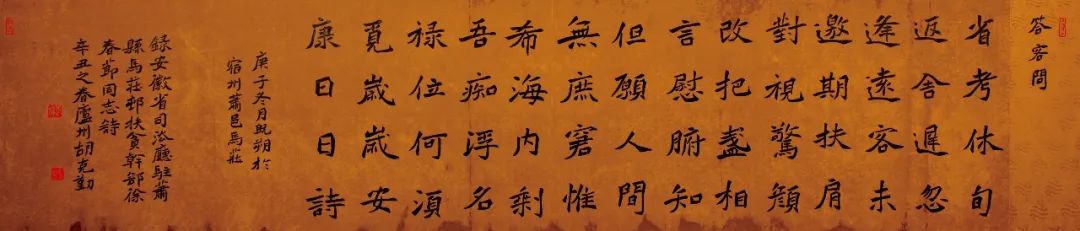 答客問
省考休旬
返舍遲忽
逢遠客未
邀期扶肩
對視驚顏
改把盞相
言慰腑知
但願人間
無庶窘惟
希海内剩
吾痴浮名
禄位何須
覓歲歲安
康日日詩
庚子冬月既朔於
宿州蕭邑馬莊
録安徽省司法廳駐蕭
縣馬莊邨扶貧幹部徐
春同志詩
辛丑之春廬州胡克勤